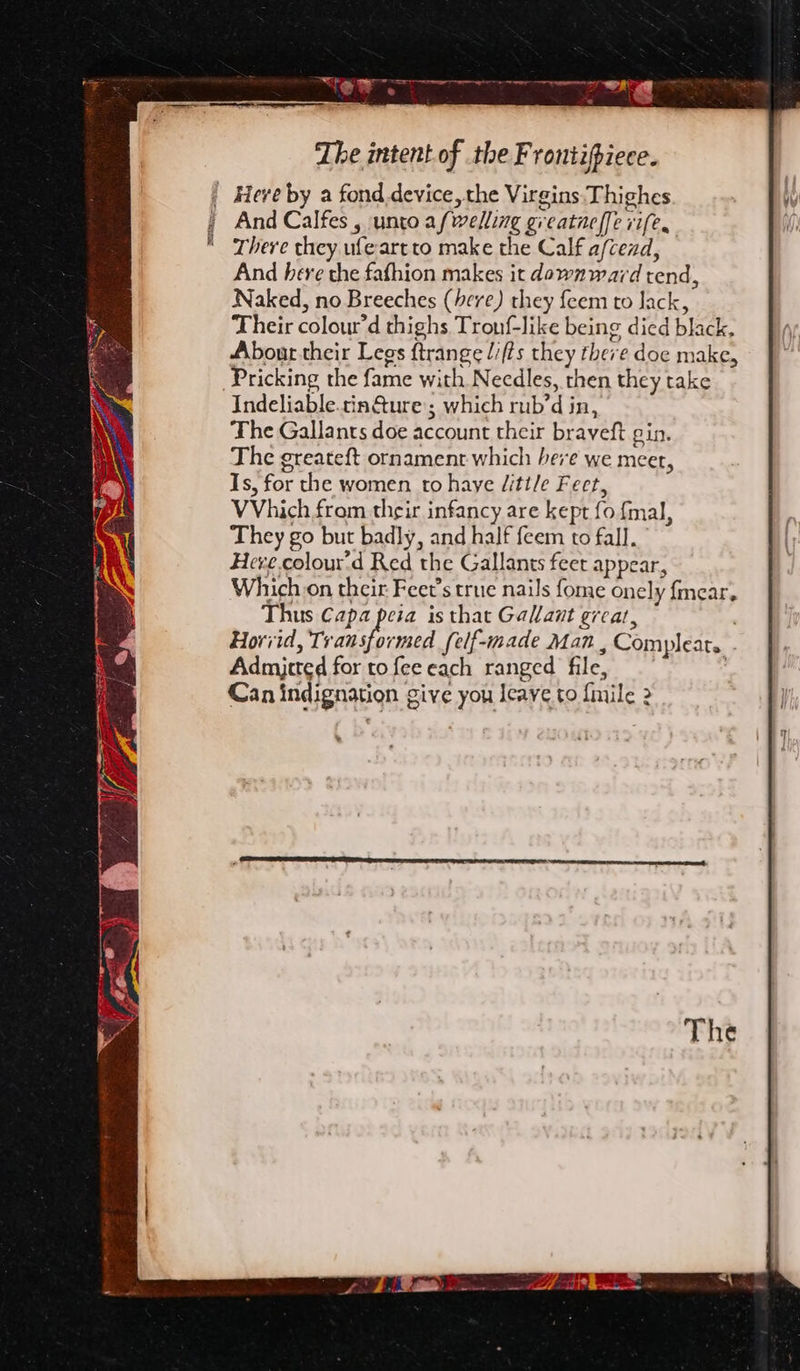 The intent of the Frontiſpiece.
Here by a fond device, the Virgins Thighes
And Calfes, unto a ſwelling greatneſſe riſe,
There they uſe art to make the Calf aſcend,
And here the faſhion makes it downward tend,
Naked, no Breeches (here) they ſeem to lack,
Their colour'd thighs Trouſ-like being died black,
About their Legs ſtrange liſts they there doe make,
Pricking the ſame with Needles, then they take
Indeliable tincture; which rub'd in,
The Gallants doe account their braveſt gin.
The greateſt ornament which here we meet,
Is, for the women to have little Feet,
VVhich from their infancy are kept ſo ſmal,
They go but badly, and half ſeem to fall.
Here colour'd Red the Gallants feet appear,
Which on their Feet's true nails ſome onely ſmear,
Thus Capa peia is that Gallant great,
Horrid, Transformed ſelf-made Man, Compleat.
Admitted for to ſee each ranged file,
Can indignation give you leave to ſmile?
The